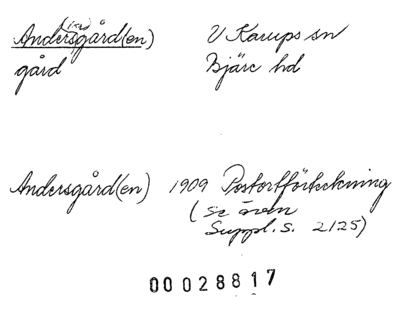 Anders(ka)gård(en) V Karups sn
gård Bjäre hd
Andersgård(en) 1909 Postortförteckning
(se även
Suppl. s. 2125)
00028817